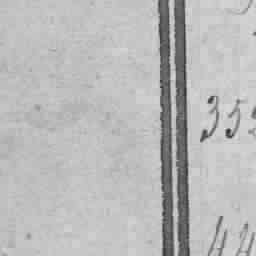 352
44